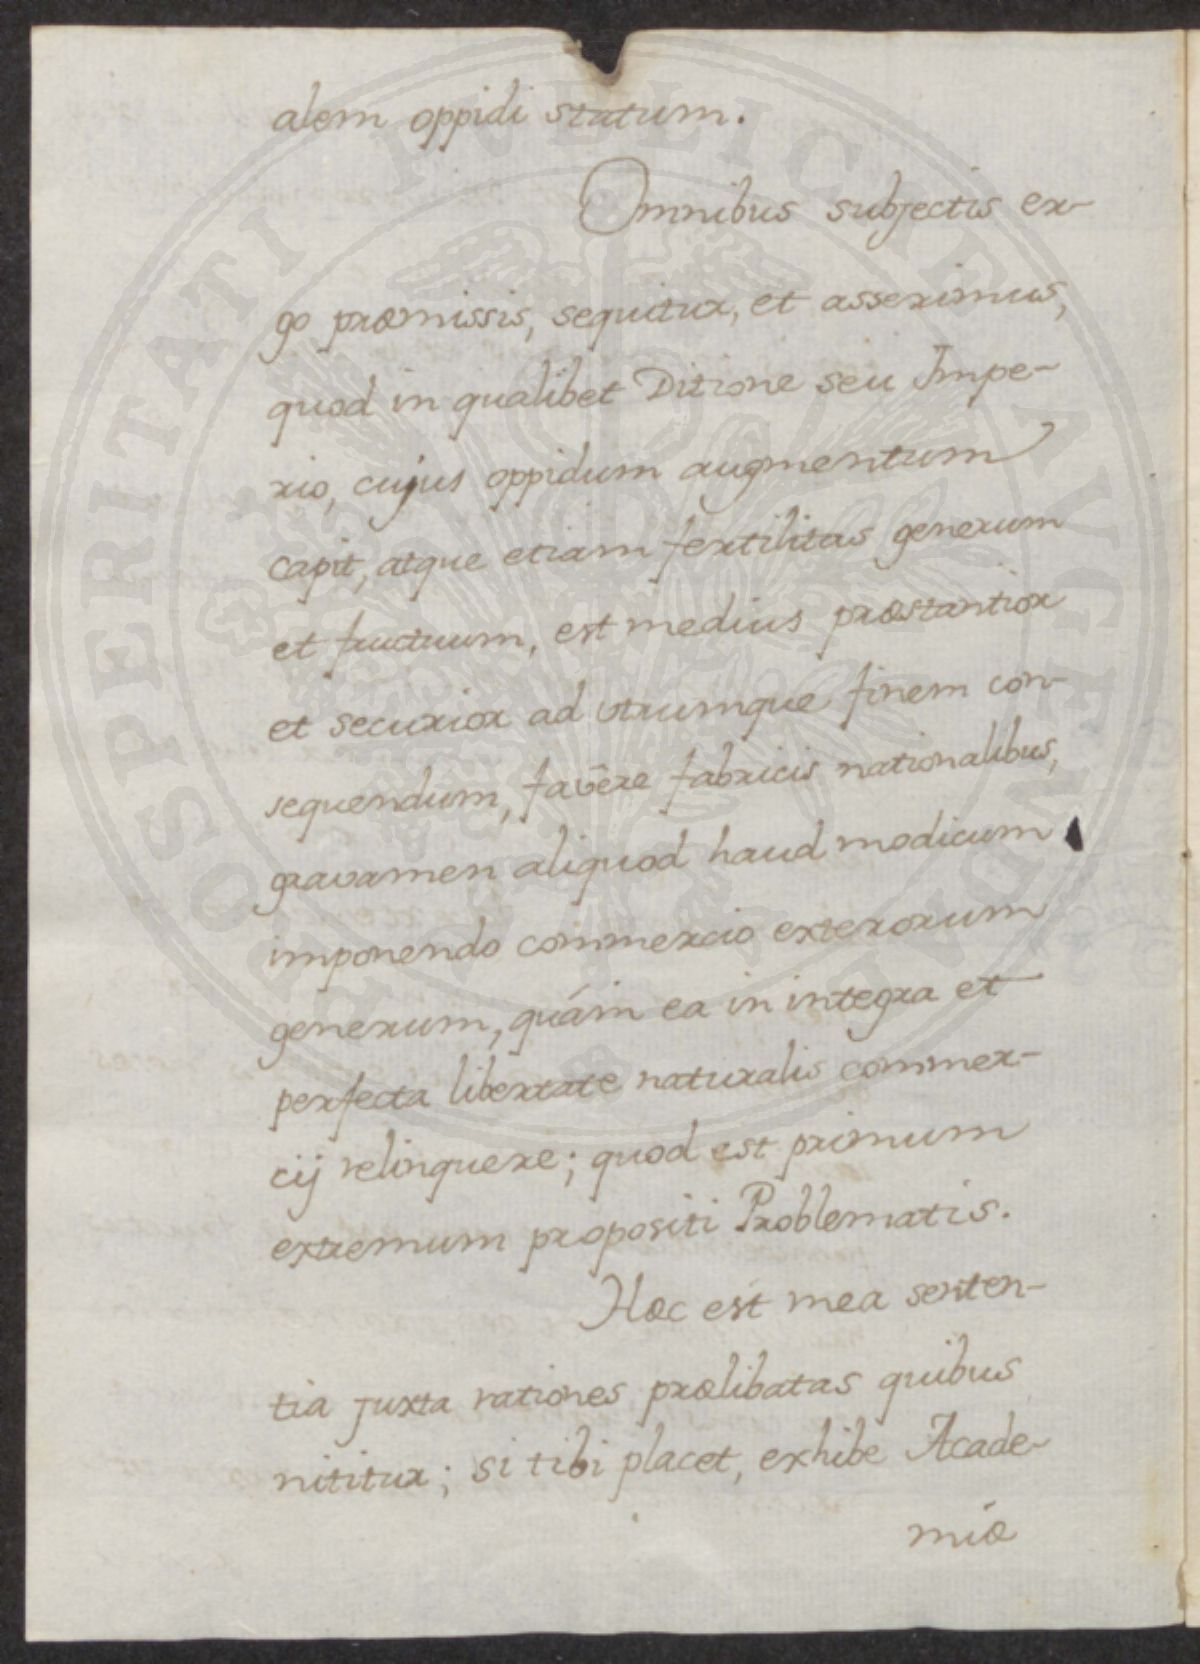 alem oppidi statum.
Omnibus subjectis er-
go præmissis, sequitur, et asserimus,
quod in qualibet Ditione seu Impe-
rio, cujus oppidum augmentum
capit, atque etiam fertilitas generum
et fructuum, est medius præstantior
et securior ad utrumque finem con-
sequendum, favēre fabricis nationalibus,
gravamen aliquod haud modicum
imponendo commercio exterorum
generum, quám ea in integra et
perfecta libertate naturalis commer-
cij relinquere; quod est primum
extremum propositi Problematis.
Hæc est mea senten-
tia juxta rationes prælibatas quibus
nititur; si tibi placet, exhibe Acade-
miæ
PROSPERITATI PVBLICAE AVGENDAE